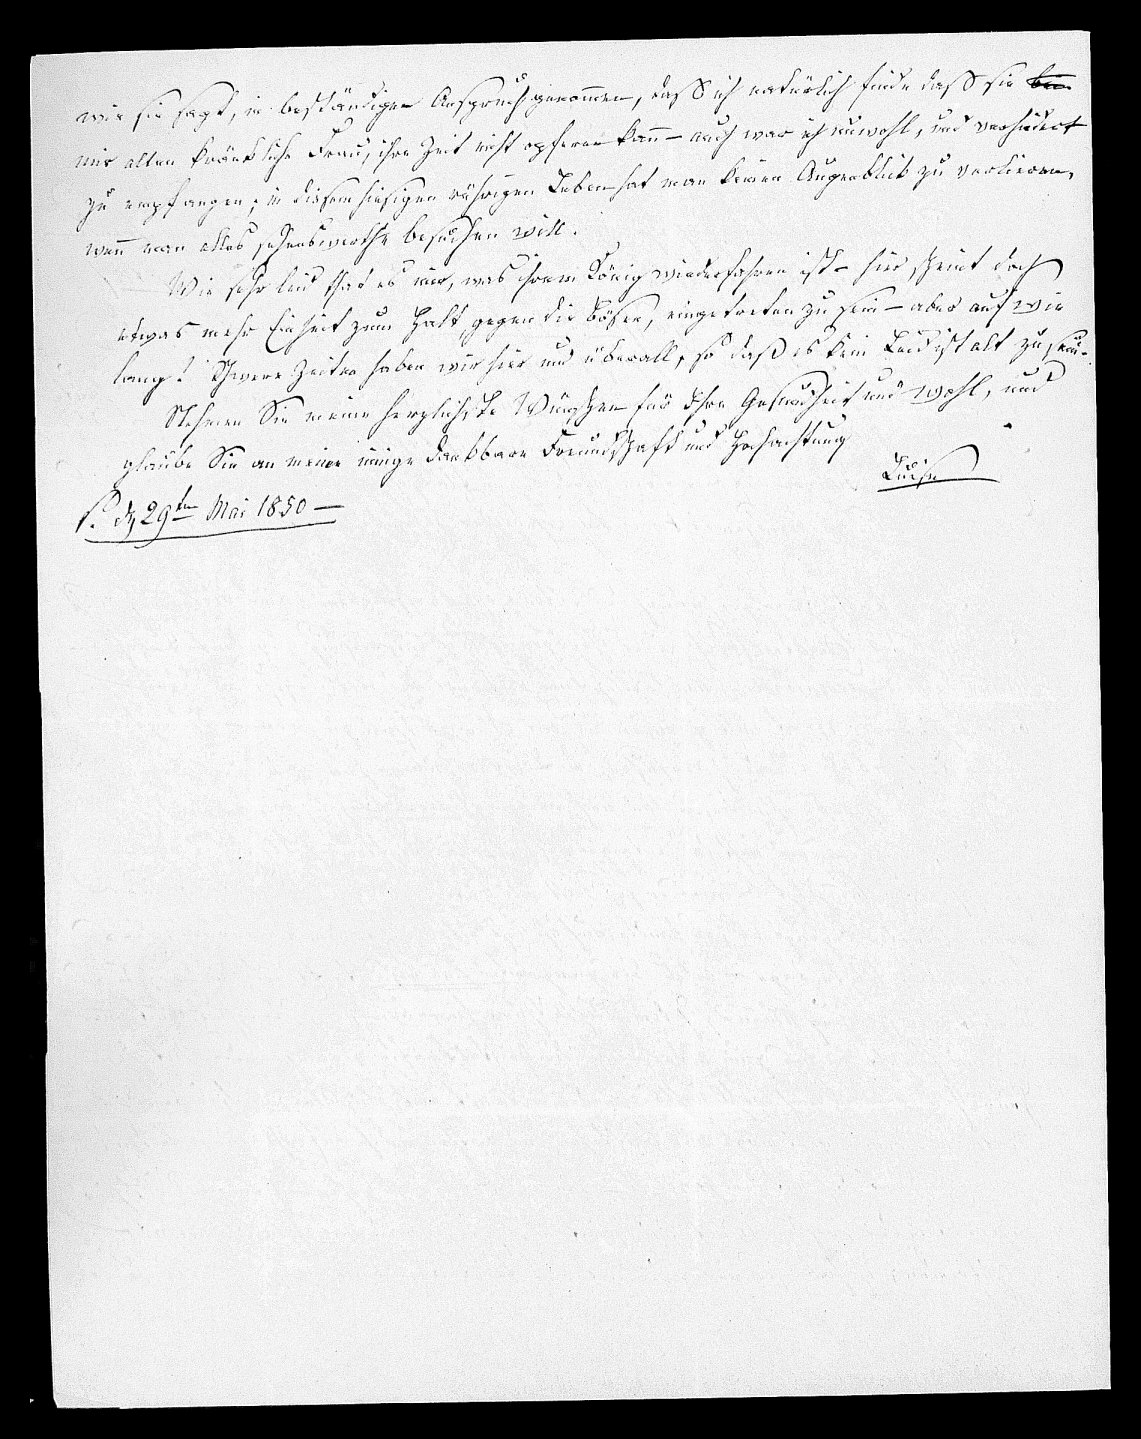 wie sie sagt, in beständigen Anspruch genommen, daß ich natürlich finde daß sie
mir alten kränkliche Frau, ihre Zeit nicht opferen kann̄ – auch war ich unwohl, und verhindert
zu empfangen; in diesem hiesigen rührigen Leben hat man keinen Augenblick zu verlieren,
wen̄ man alles sehenswerthe besuchen will.
Wie sehr leid that es mir, was ihrem König wiederfahren ist – hier scheint doch
etwas mehr Einheit zum Halt, gegen die Bösen, eingetreten zu sein – aber auf wie
lang! Schwere Zeiten haben wir hier und überall, so daß es kein Leid ist alt zu sein.
Nehmen Sie meine herzlichste Wünschen für Ihre Gesundheit und Wohl, und
glaube Sie an meine innige dankbare Freundschaft und Hochachtung
Luise
P. d 29ten Mai 1850 –